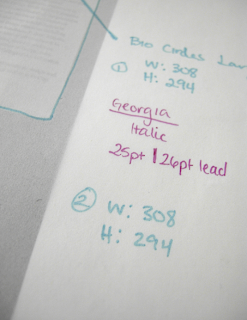 Bio Codes
① W: 308
H: 294
Georgia
Italic
25pt | 26pt lead
② W: 308
H: 294